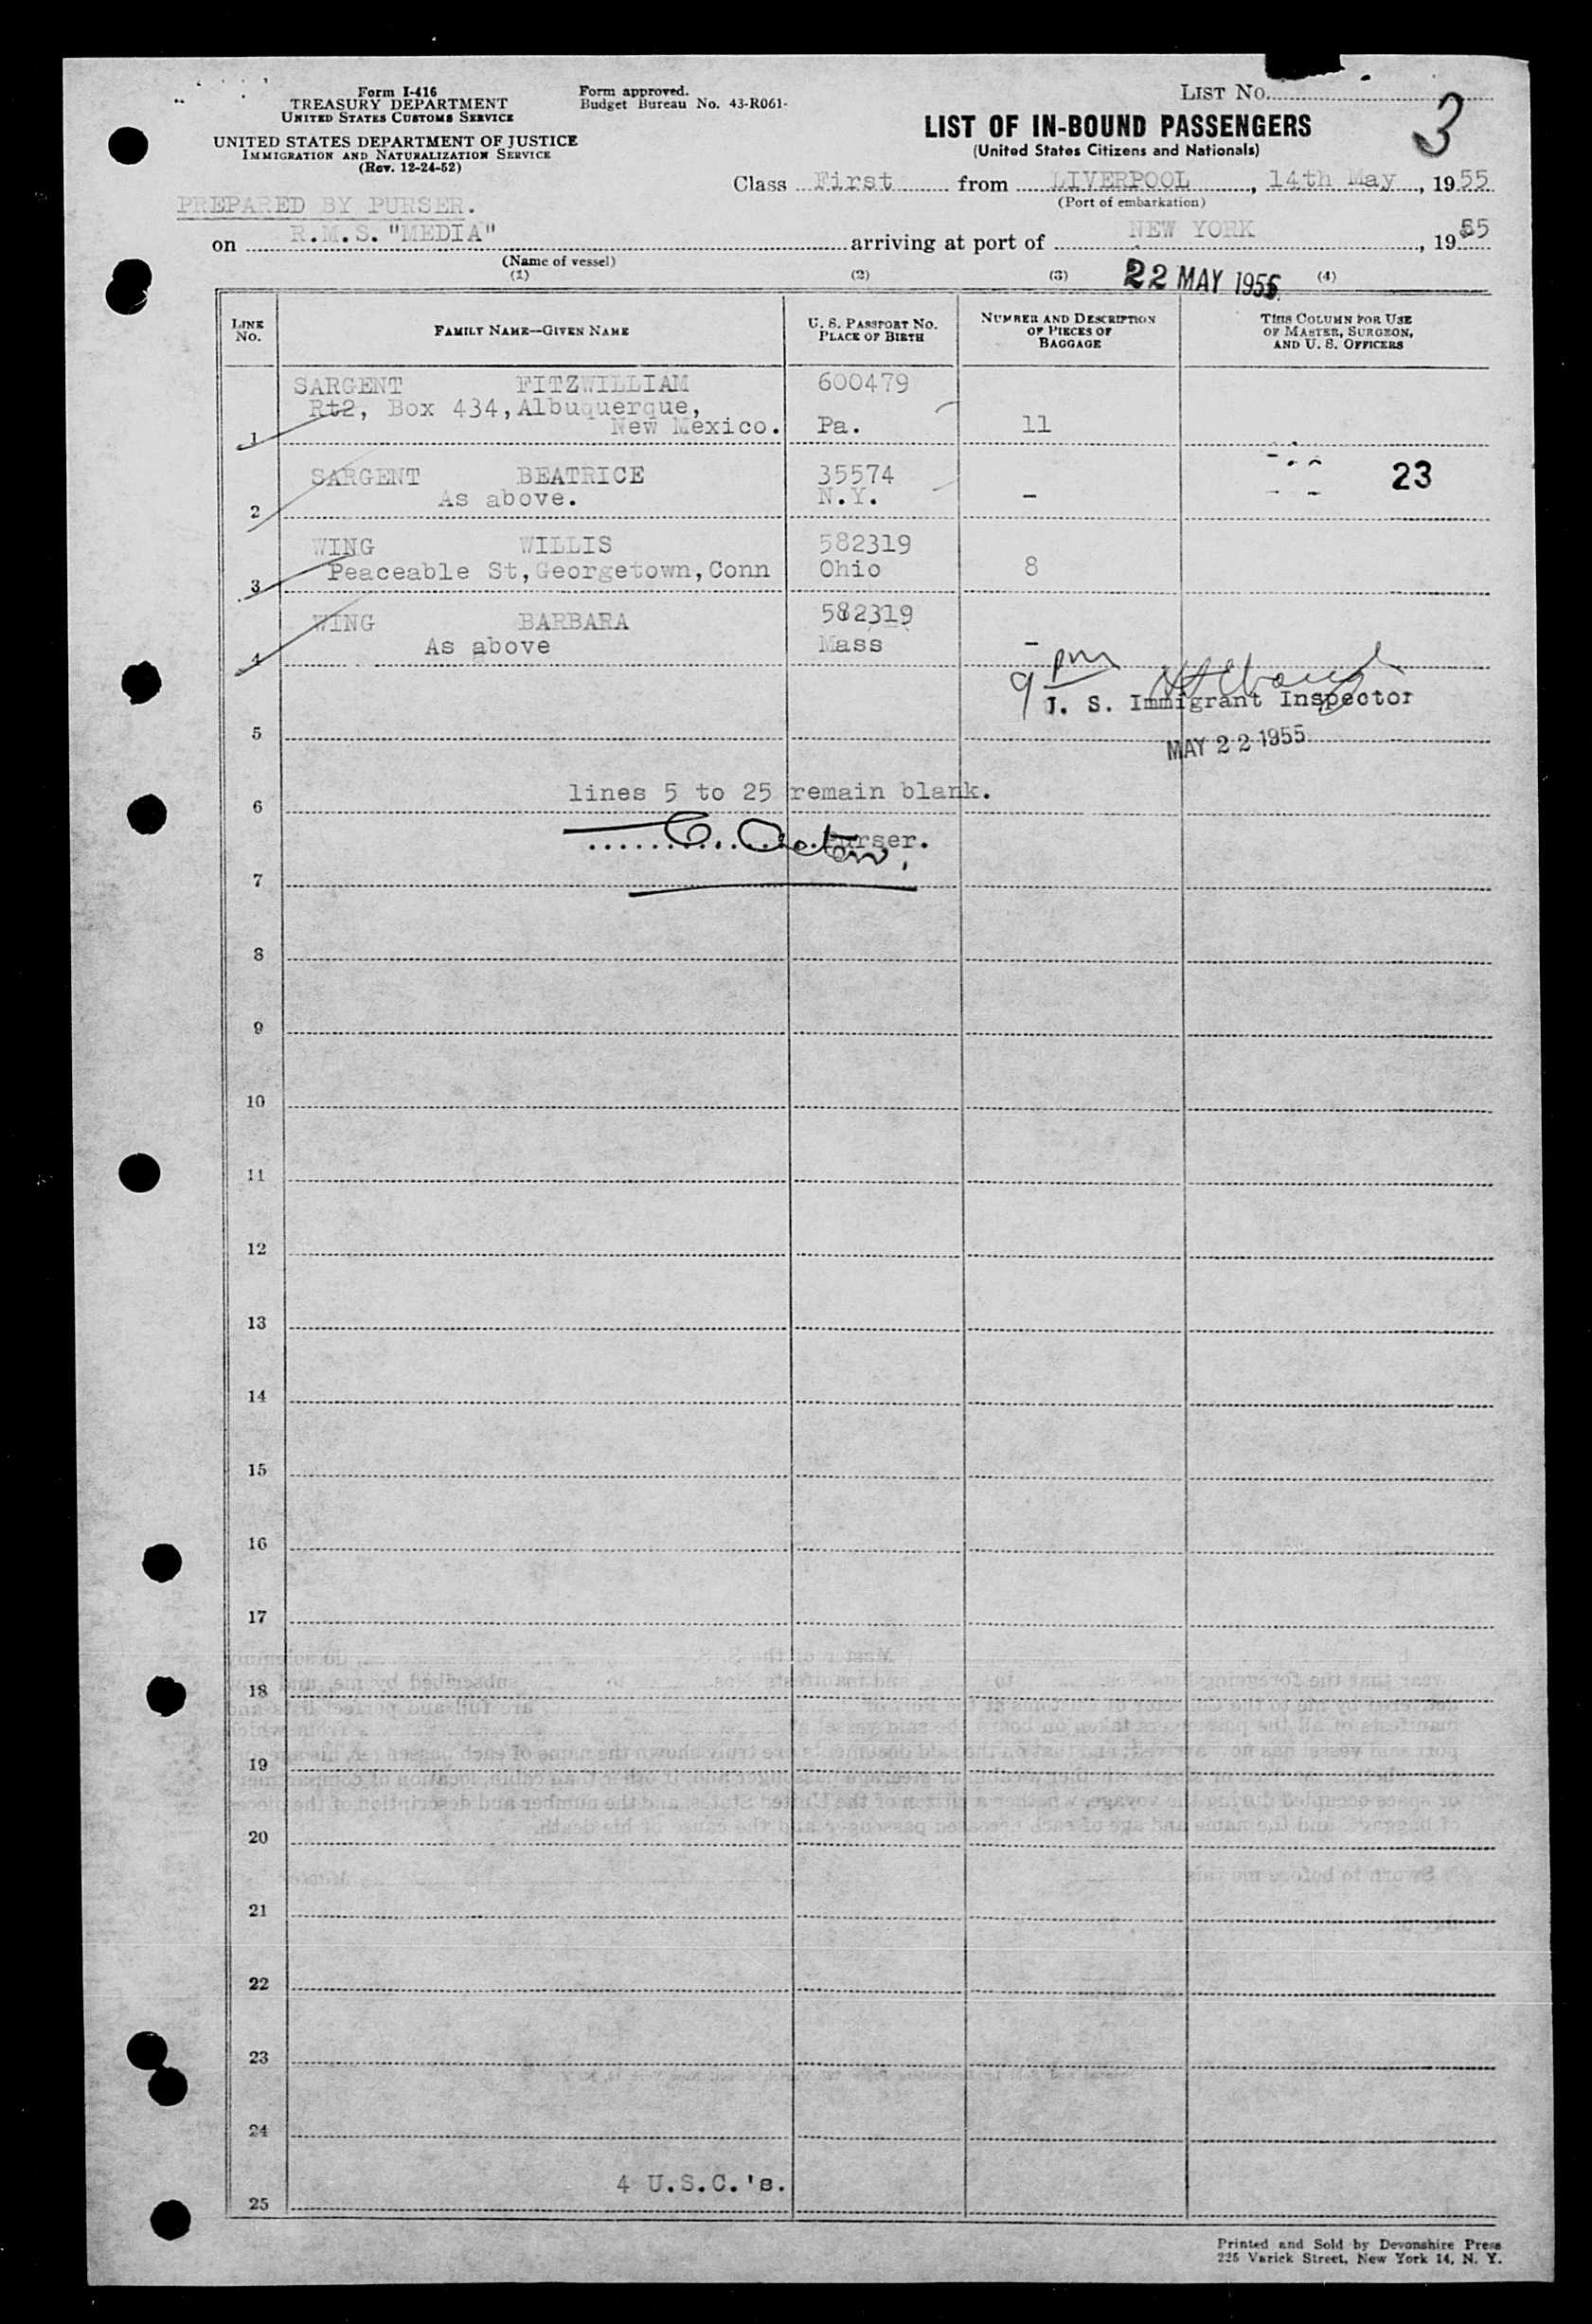 Form I-416
TREASURY DEPARTMENT
UNITED STATES CUSTOMS SERVICE
UNITED STATES DEPARTMENT OF JUSTICE
IMMIGRATION AND NATURALIZATION SERVICE
(Rev. 12-24-52)
Form approved.
Budget Bureau No. 43-R061-
LIST No.
3
LIST OF IN-BOUND PASSENGERS
(United States Citizens and Nationals)
Class First from LIVERPOOL, 14th May, 1955
(Port of embarkation)
PREPARED BY PURSER.
on R.M.S. "MEDIA" arriving at port of NEW YORK, 1955
(Name of vessel)
(1) (2) (3) 22 MAY 1955 (4)
LINE No.
FAMILY NAME—GIVEN NAME
U. S. PASSPORT No.
PLACE OF BIRTH
NUMBER AND DESCRIPTION
OF PIECES OF
BAGGAGE
THIS COLUMN FOR USE
OF MASTER, SURGEON,
AND U. S. OFFICERS
SARGENT FITZWILLIAM 600479
Rt2, Box 434, Albuquerque,
1 New Mexico. Pa. 11
SARGENT BEATRICE 35574 23
As above. N.Y. -
2
WING WILLIS 582319
Peaceable St, Georgetown, Conn Ohio 8
3
WING BARBARA 582319
As above Mass -
4
9 pm
U. S. Immigrant Inspector
5 MAY 22 1955
lines 5 to 25 remain blank.
6
Purser.
7
8
9
10
11
12
13
14
15
16
17
18
19
20
21
22
23
24
4 U.S.C.'s.
25
Printed and Sold by Devonshire Press
225 Varick Street, New York 14, N. Y.